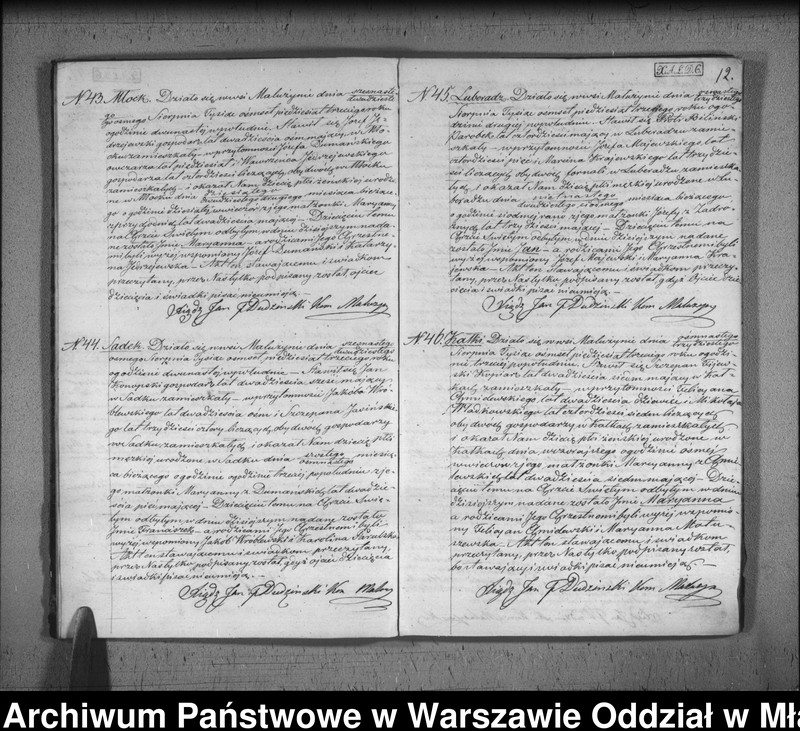 12.
N. 43. Młock. Działo się we wsi Malużynie dnia szesnastego
dwudziestego
ósmego Sierpnia Tysiąc ośmset pięćdziesiąt trzeciego roku
ogodzinie dwunastéj w południe. Stawił się Józef
gospodarz lat dwadzieścia ośm mający, w Mło-
cku zamieszkały w przytomności Józefa Dumańskiego
owczarza lat pięćdziesiąt i Wawrzeńca Jędrzejewskiego
gospodarza lat czterdzieści liczących obydwóch w Młocku
zamieszkałych i okazał Nam dziecię płci żeńskiéj urodzo-
ne w Młocku dnia
dwudziestego drugiego miesiąca bieżące-
go o godzinie dziesiątéj wieczór z jego małżonki Maryanny
lat dwadzieścia mającéj. Dziecięciu temu
na Chrzcie Świętym odbytym w dniu dzisiejszym nada-
ne zostało Imie Maryanna a rodzicami Jego Chrzestne-
mi byli wyżéj wspomniony Józef Dumański i Katarzy-
na Jędrzejewska. Akt ten stawającemu i świadkom
przeczytany, przez Nas tylko podpisany został, ojciec
dziecięcia i świadki pisać nieumieją.
Xiądz Jan F. Dudziński Kom. Malużyn
N. 44. Sadek. Działo się we wsi Malużynie dnia szesnastego
dwudziestego
ósmego Sierpnia Tysiąc ośmset pięćdziesiąt trzeciego roku
ogodzinie dwunastéj w południe. Stawił się Jan
Konopski gospodarz lat dwadzieścia sześć mający
w Sadku zamieszkały w przytomności Jakóba Wró-
blewskiego lat dwadzieścia ośm i Szczepana Jasińskie-
go lat trzydzieści cztery liczących, obydwóch gospodarzy
w Sadku zamieszkałych i okazał Nam dziecię płci
męzkiéj urodzone w Sadku dnia szóstego
ośmnastego miesią-
ca bieżącego o godzinie trzeciéj po południu z je-
go małżonki Maryanny z Dumańskich lat dwadzie-
ścia pięć mającéj. Dziecięciu temu na Chrzcie Świę-
tym odbytym w dniu dzisiejszym nadane zostało
Imie Franciszek a rodzicami Jego Chrzestnemi byli
wyżéj wspomniony Jakób Wróblewski i Karolina
Akt ten stawającemu i świadkom przeczytany,
przez Nas tylko podpisany został gdyż ojciec dziecięcia
i świadki pisać nieumieją.
Xiądz Jan F. Dudziński Kom. Malużyn
N. 45. Luberadz. Działo się we wsi Malużynie dnia ośmnastego
trzydziestego
Sierpnia Tysiąc ośmset pięćdziesiąt trzeciego roku ogo-
dzinie drugiéj w południe. Stawił się Bieliński
Parobek lat czterdzieści mający w Luberadzu zamie-
szkały w przytomności Józefa Majewskiego lat
czterdzieści pięć i Marcina Krajewskiego lat trzydzie-
ści liczących obydwóch fornali w Luberadzu zamieszka-
łych i okazał Nam dziecię płci męzkiéj urodzone w Lu-
beradzu dnia
dwudziestego ósmego miesiąca bieżącego
o godzinie siódméj rano z jego małżonki Józefy z Zadro-
żnych lat trzydzieści mającéj. Dziecięciu temu na
Chrzcie Świętym odbytym w dniu dzisiejszym nadane
zostało Imie Jan a rodzicami Jego Chrzestnemi byli
wyżéj wspomniony Józef Majewski i Maryanna Kra-
jewska. Akt ten stawającemu i świadkom przeczy-
tany, przez Nas tylko podpisany został gdyż Ojciec Dzie-
cięcia i świadki pisać nieumieją.
Xiądz Jan F. Dudziński Kom. Malużyn
N. 46. Kałki. Działo się we wsi Malużynie dnia ośmnastego
trzydziestego
Sierpnia Tysiąc ośmset pięćdziesiąt trzeciego roku ogodzi-
nie trzeciéj po południu. Stawił się Szczepan
ski lat dwadzieścia siedm mający w Kał-
kach zamieszkały w przytomności Felicyana
Chmielewskiego lat dwadzieścia dziewięć i Mikołaja
Władkowskiego lat czterdzieści siedm liczących
obydwóch gospodarzy w Kałkach zamieszkałych
i okazał Nam dziecię płci żeńskiéj urodzone w
Kałkach dnia wczorajszego ogodzinie ósméj
wieczór z jego małżonki Maryanny z Chmie-
lewskich lat dwadzieścia siedm mającéj. Dzie-
cięciu temu na Chrzcie Świętym odbytym w dniu
dzisiejszym nadane zostało Imie Maryanna
a rodzicami Jego Chrzestnemi byli wyżéj wspomnio-
ny Felicyan Chmielewski i Maryanna
Akt ten stawającemu i świadkom
przeczytany, przez Nas tylko podpisany został,
bo stawający i świadki pisać nieumieją.
Xiądz Jan F. Dudziński Kom. Malużyn
Archiwum Państwowe w Warszawie Oddział w Mła